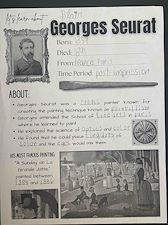 Let's learn about
Georges Seurat
Born:
Died:
From: France Paris
Time Period: post-impression
ABOUT:
Georges Seurat was a French painter known for
creating the painting technique known as pointillism
Georges attended the School of Fine Arts in Paris
where he learned to paint.
He explored the science of Optical and Color
He found that he could place tiny dots of
Color and the eyes would mix them.
HIS MOST FAMOUS PAINTING
"A Sunday on La
Grande Jatte"
painted between
1884 and 1886